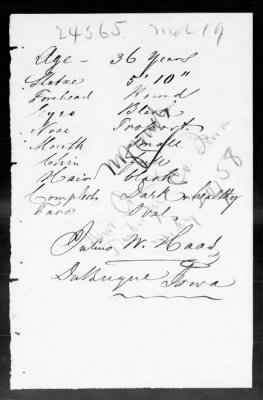 24365. Mch 19
Age - 36 Years
Statue 5' 10"
Forehead Round
Eyes Black
Nose Proport.
Mouth Small
Chin
Hair Black
Complects Dark & healthy
Face Oval
Julius W. Haas
DuBuque Iowa
58